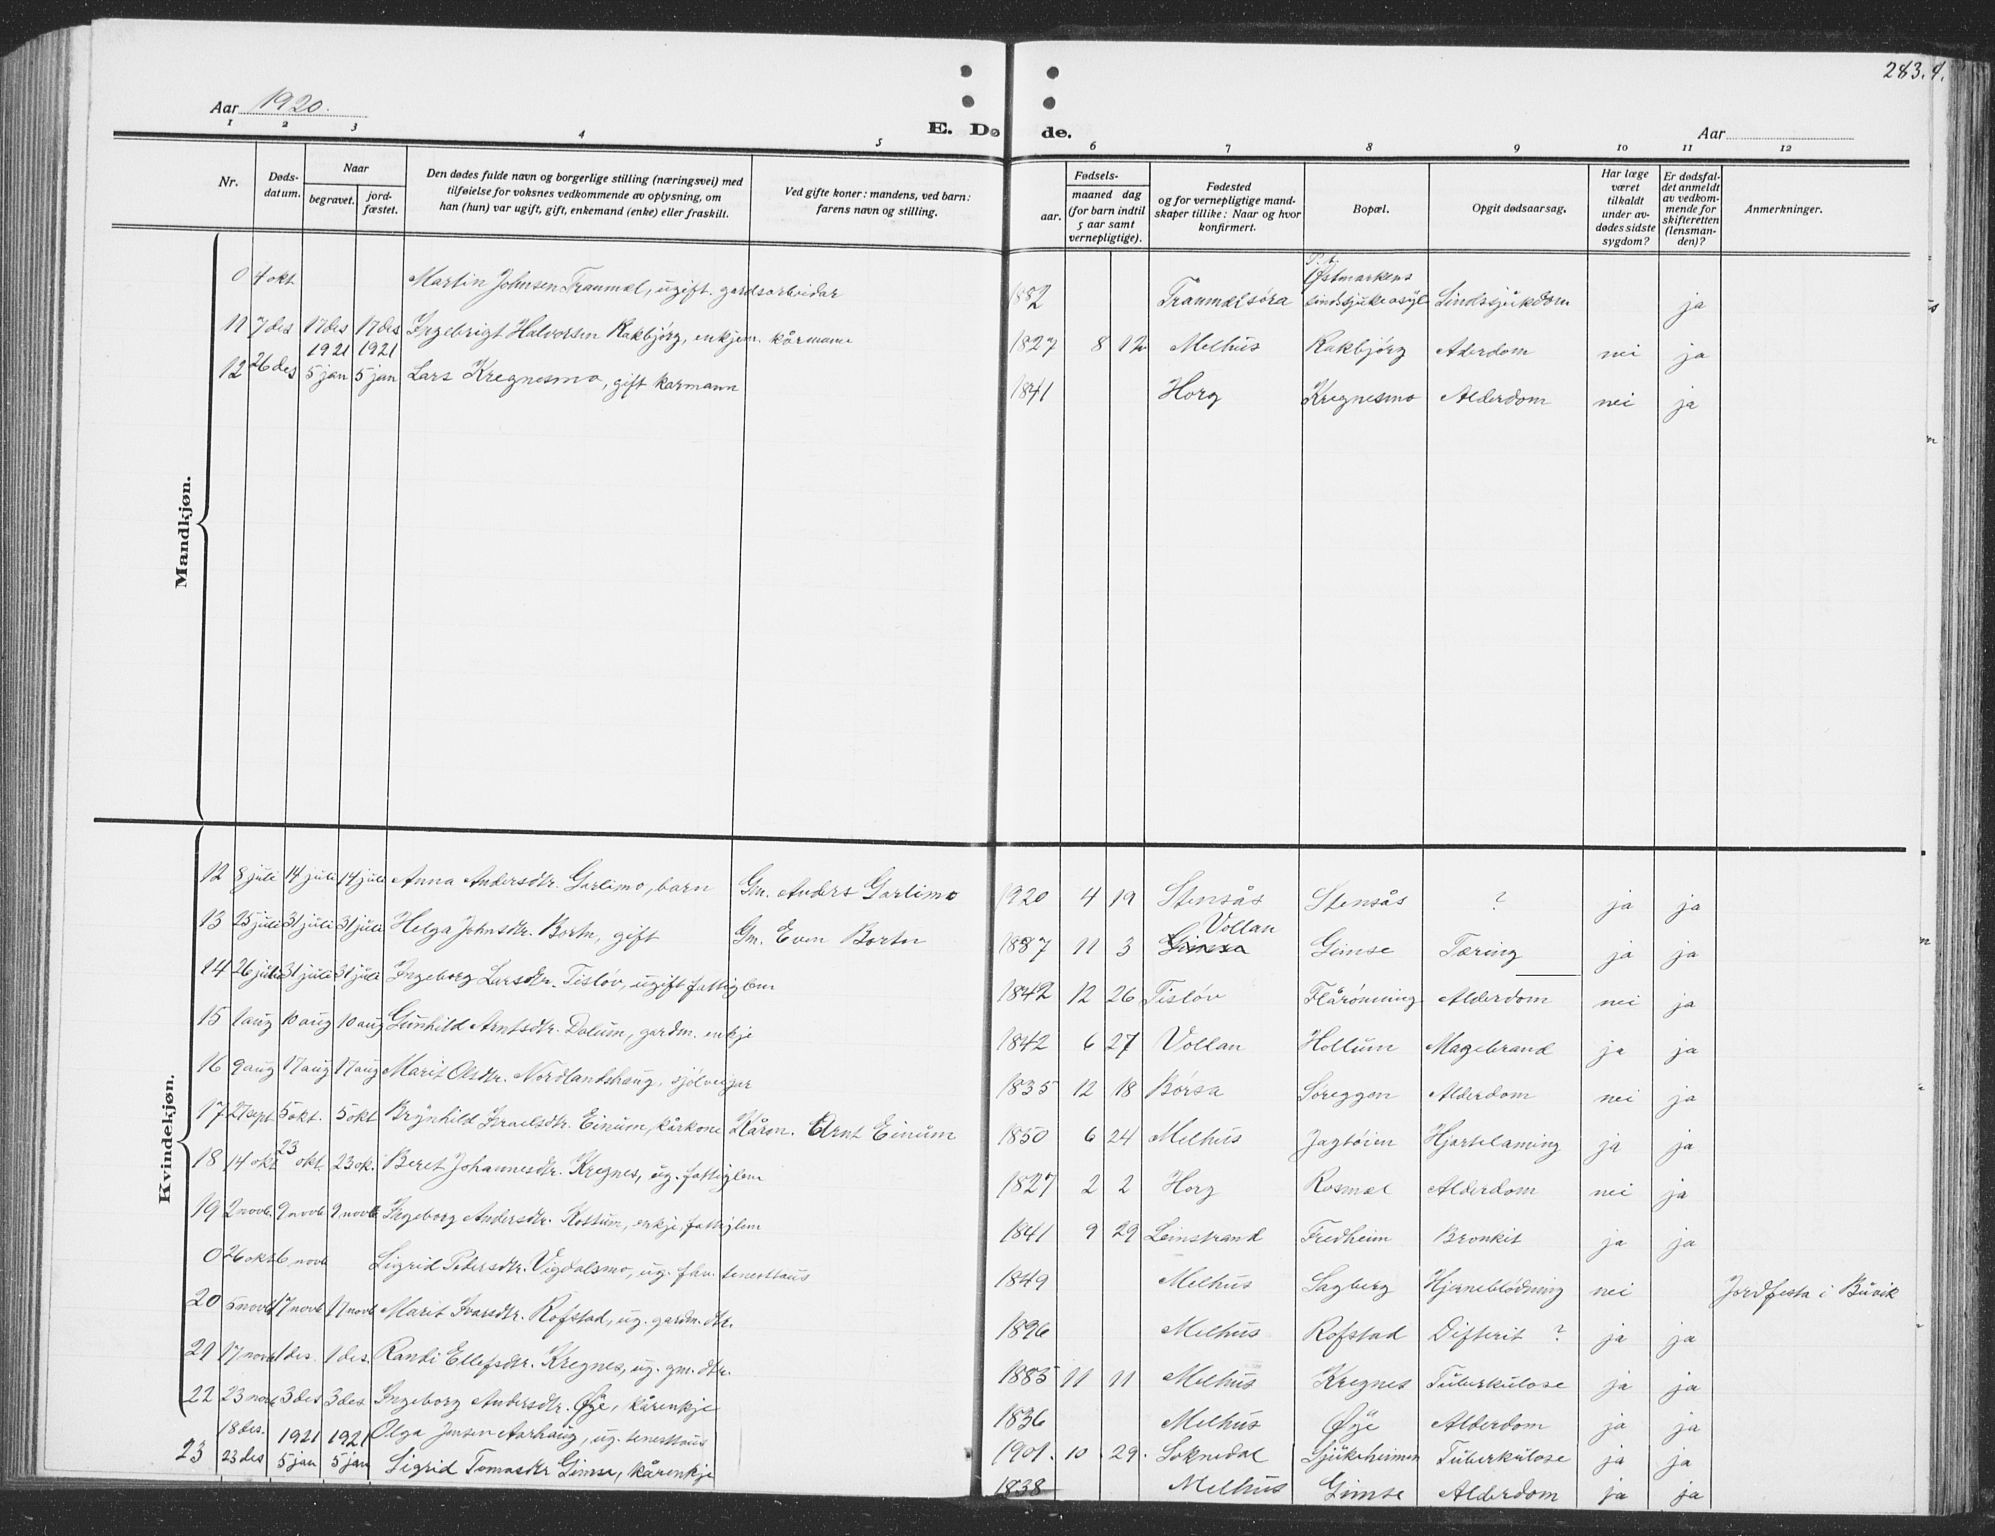 283. 9.
Aar 1920.
E. Døde.
Aar
1 2 3 4 5 6 7 8 9 10 11 12
Nr. | Døds-datum. | Naar begravet. | jord-fæstet. | Den dødes fulde navn og borgerlige stilling (næringsvei) med tilføielse for voksnes vedkommende av oplysning, om han (hun) var ugift, gift, enkemand (enke) eller fraskilt. | Ved gifte koner: mandens, ved barn: farens navn og stilling. | Fødsels- aar. | maaned dag (for barn indtil 5 aar samt vernepligtige). | Fødested og for vernepligtige mandskaper tillike: Naar og hvor konfirmert. | Bopæl. | Opgit dødsaarsag. | Har læge været tilkaldt under avdødes sidste sygdom? | Er dødsfaldet anmeldt av vedkommende for skifteretten (lensmanden)? | Anmerkninger.
Mandkjøn.
0 4 okt Martin Johnsen Traumæl, ugift. gardsarbeidar 1882 Traumælsøra P.t. Østmarkens sindssjukeasyl Sindssjukdom ja
11 7 des 17 des 17 des Ingebrigt Halvorsen Rakbjørg, enkjem. kårmann 1827 8 12 Melhus Rakbjørg Aderdom nei ja
12 26 des 1921 5 jan 1921 5 jan Lars Kregnesmo, gift karmann 1841 Horg Kregnesmo Alderdom nei ja
Kvindekjøn.
12 8 juli 14 juli 14 juli Anna Andersdtr. Garlimo, barn Gm. Anders Garlimo 1920 4 19 Stensås Stensås ? ja ja
13 25 juli 31 juli 31 juli Helga Johnsdtr. Bortn, gift Gm. Even Bortn 1887 11 3 Vollan Gimse Gimse Tæring ja ja
14 26 juli 31 juli 31 juli Ingeborg Larsdtr. Tisløv, ugift fattiglem 1842 12 26 Tisløv Flårønning Alderdom nei ja
15 1 aug 10 aug 10 aug Gunhild Arntsdtr. Dalum, gardm. enkje 1842 6 27 Vollan Hollum Magebrand ja ja
16 9 aug 17 aug 17 aug Marit Olsdtr. Nordlandshaug, sjølveigar 1835 12 18 Børsa Søreggen Alderdom nei ja
17 27 sept 5 okt. 5 okt Brynhild Israelsdtr. Einum, kårkone Kårm. Arnt Einum 1850 6 24 Melhus Jagtøim Hjartelaming ja ja
18 14 okt 23 okt. 23 ok. Beret Johannesdtr. Kregnes, ug. fattiglem 1827 2 2 Horg Rosmæl Alderdom nei ja
19 2 novb. 9 novb. 9 novb Ingeborg Andersdtr. Kottum, enkje, fattiglem 1841 9 29 Leinstrand Fredheim Bronkit ja ja
0 26 okt 6 novb Sigrid Petersdtr. Vigdalsmo, ug. fhv. tenerttaus 1849 Melhus Sagberg Hjerneblødning nei Jordfesta i Buvik
20 5 novb 17 novb 17 novb Marit Ivarsdtr. Rofstad, ug. gardm. dtr. 1896 Melhus Rofstad Difterit ? ja ja
21 17 novb 1 des. 1 des. Randi Ellefsdtr. Kregnes, ug. gm. dtr. 1885 11 11 Melhus Kregnes Tuberkulose ja ja
22 23 novb 3 des 3 des Ingeborg Andersdtr. Øye, kårenkje 1836 Melhus Øye Alderdom ja ja
18 des. Olga Jensen Aarhaug, ug. tenerttaus 1901. 10. 29. Soknedal Sjukeheimen Tuberkulose ja ja
23 23 des 1921 5 jan 1921 5 jan Sigrid Tomasdtr Gimse, kårenkje 1838 Melhus Gimse Alderdom ja ja